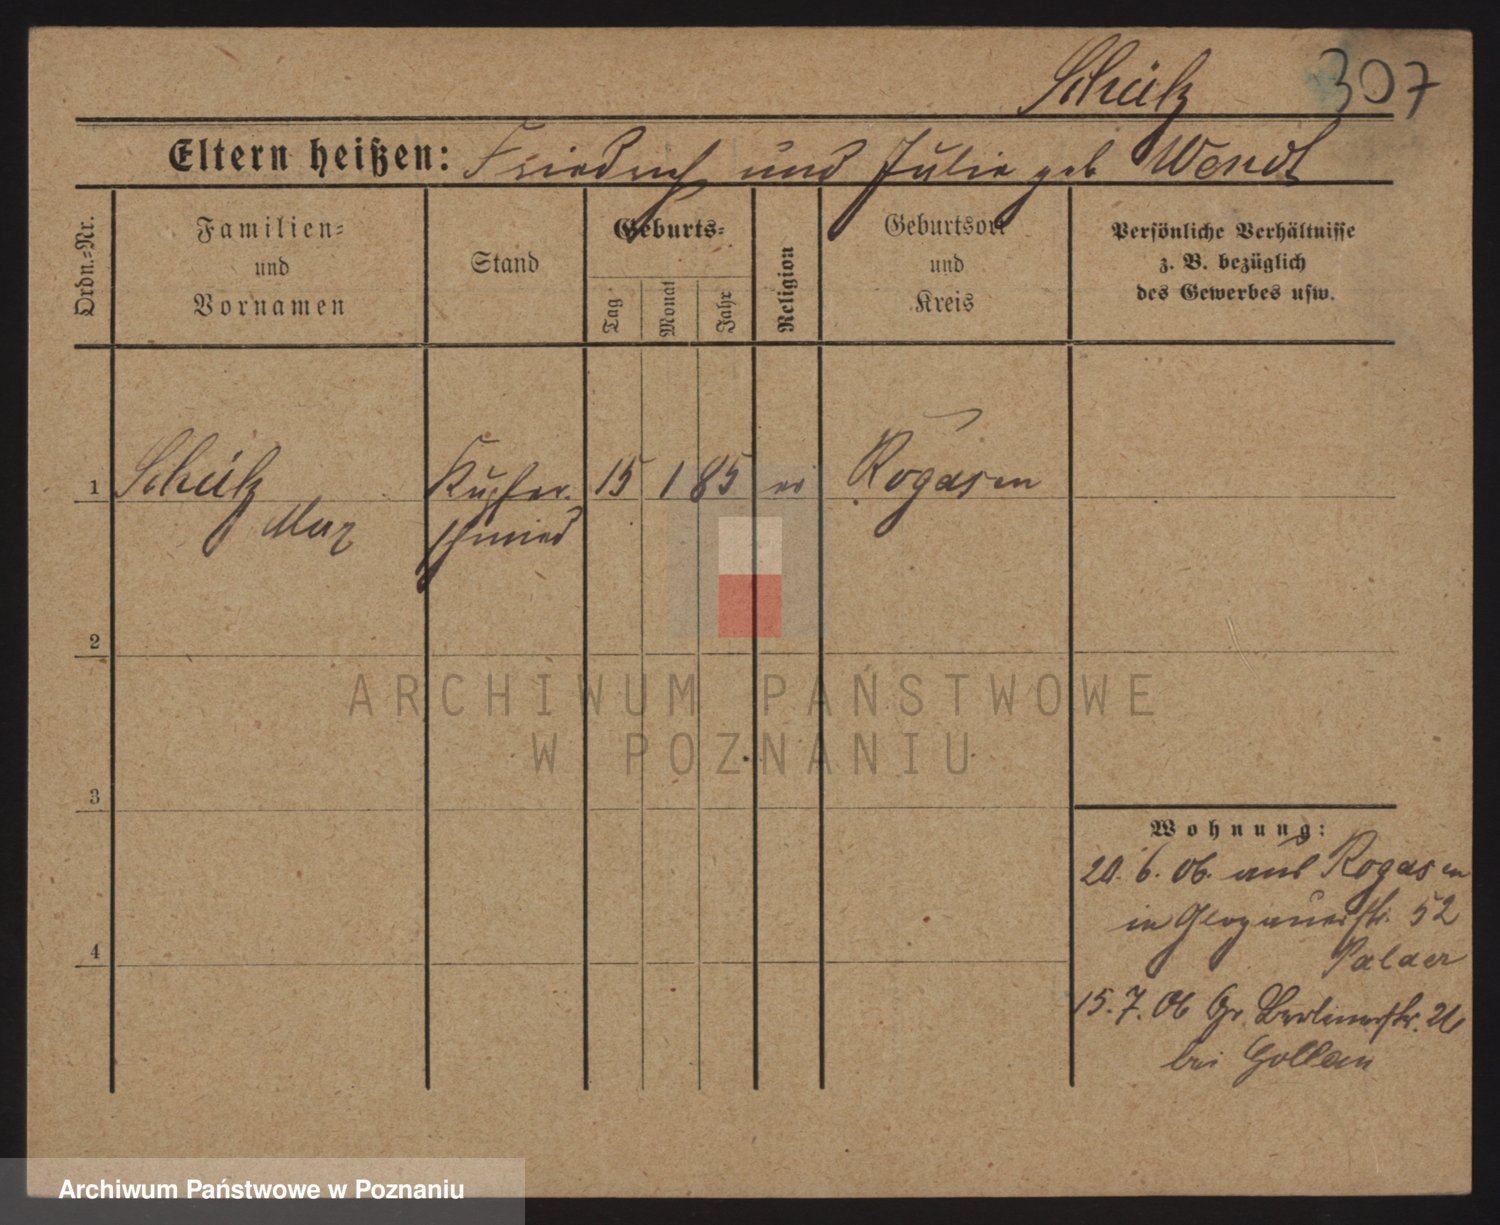 Schülz 307
Eltern heißen: Friedrich und Julie geb Wendt
Ordn.-Nr.
Familien-
und
Vornamen
Stand
Geburts-
Tag
Monat
Jahr
Religion
Geburtsort
und
Kreis
Persönliche Verhältnisse
z. B. bezüglich
des Gewerbes usw.
1 Schülz Kupfer- 15 1 85 ev Rogasen
Max schmied
2
3
4
Wohnung:
20. 6. 06. aus Rogasen
in Glogauerstr. 52
15. 7. 06 Gr. Berlinerstr. 26
bei Gollan
ARCHIWUM PAŃSTWOWE
W POZNANIU
Archiwum Państwowe w Poznaniu